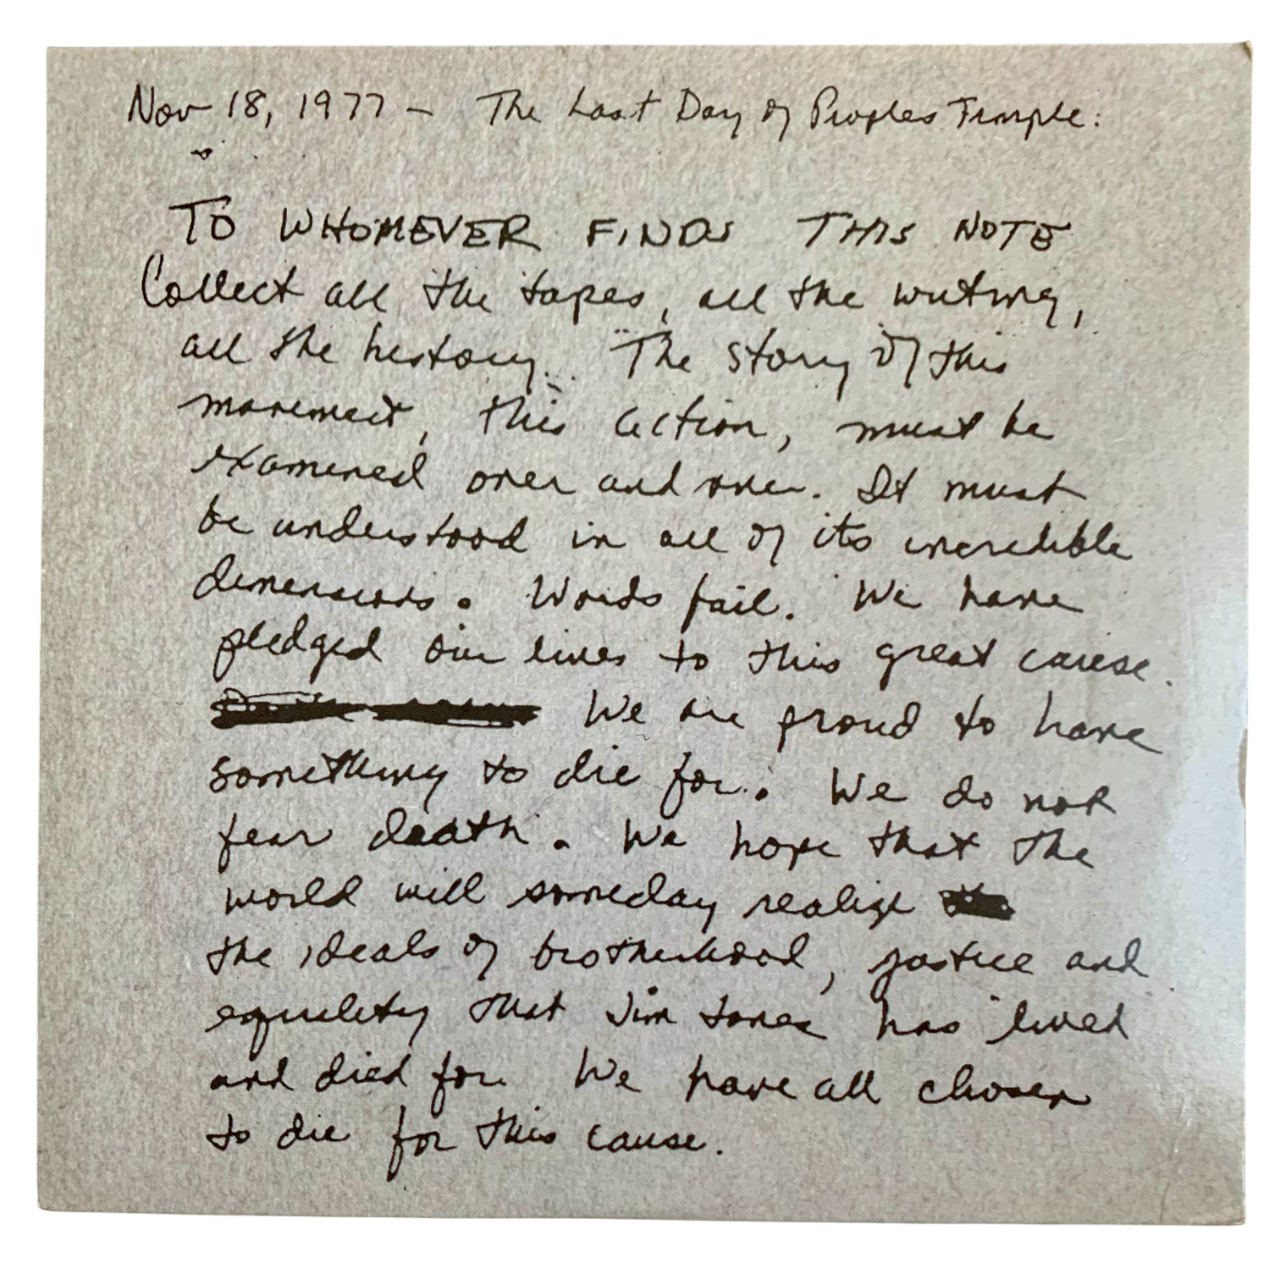 Nov 18, 1977 – The Last Day of Peoples Temple:
TO WHOMEVER FINDS THIS NOTE
Collect all the tapes, all the writing,
all the history. The story of this
movement, this action, must be
examined over and over. It must
be understood in all of its incredible
dimensions. Words fail. We have
pledged our lives to this great cause.
We are proud to have
something to die for. We do not
fear death. We hope that the
world will someday realize
the ideals of brotherhood, justice and
equality that Jim Jones has lived
and died for. We have all chosen
to die for this cause.